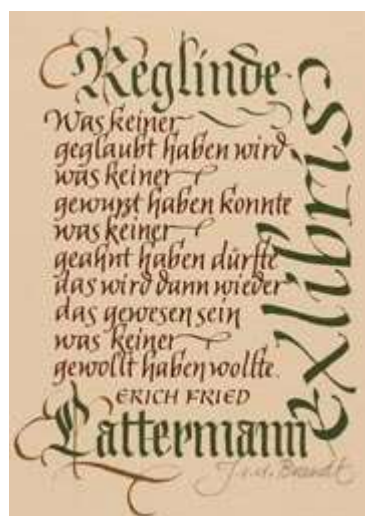 Reglinde
Was keiner
geglaubt haben wird
was keiner
gewußt haben konnte
was keiner
geahnt haben dürfte
das wird dann wieder
das gewesen sein
was keiner
gewollt haben wollte.
ERICH FRIED
Lattermann
exlibris